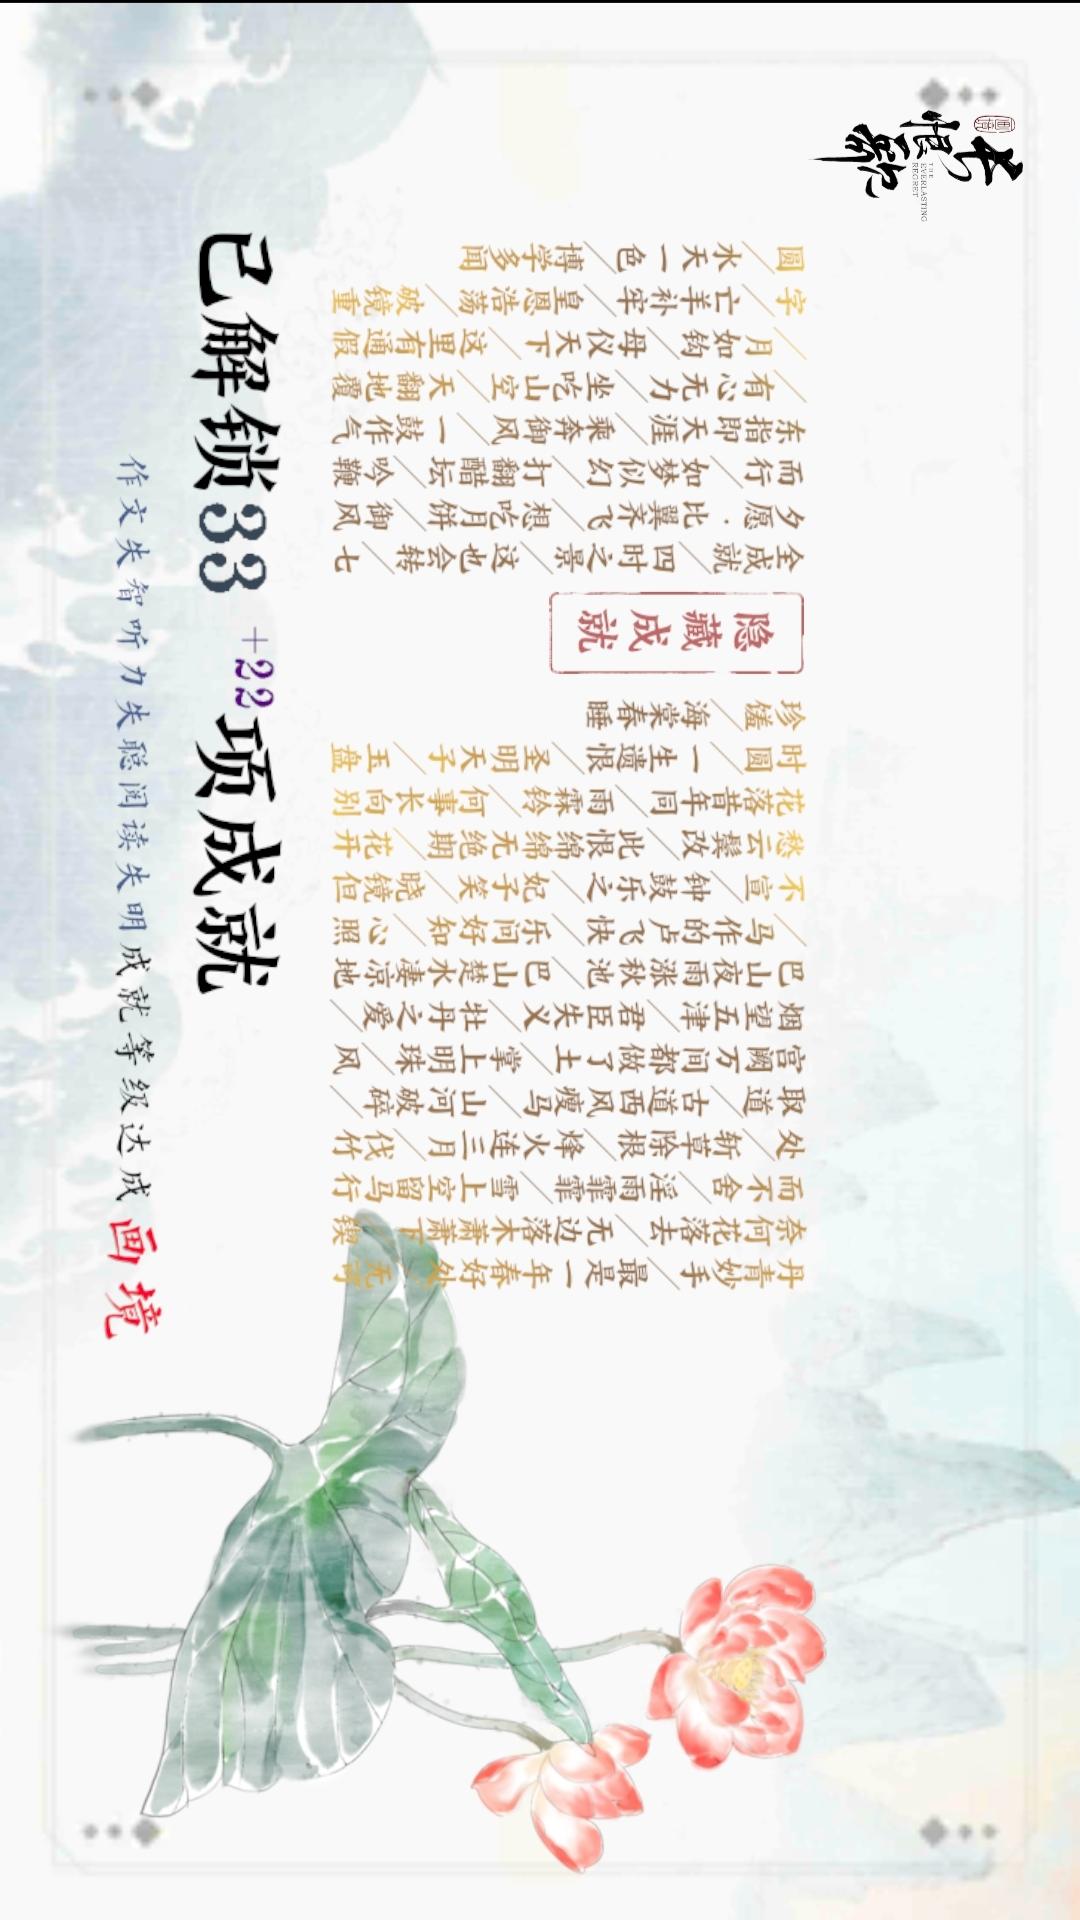 长恨歌
THE EVERLASTING REGRET
丹青妙手／最是一年春好处／无可
奈何花落去／无边落木萧萧下／锲
而不舍／淫雨霏霏／雪上空留马行
处／斩草除根／烽火连三月／伐竹
取道／古道西风瘦马／山河破碎／
宫阙万间都做了土／掌上明珠／风
烟望五津／君臣失义／牡丹之爱／
巴山夜雨涨秋池／巴山楚水凄凉地
／马作的卢飞快／乐问好知／心照
不宣／钟鼓乐之／妃子笑／晓镜但
愁云鬓改／此恨绵绵无绝期／花开
花落昔年同／雨霖铃／何事长向别
时圆／一生遗恨／圣明天子／玉盘
珍馐／海棠春睡
隐藏成就
全成就／四时之景／这也会转／七
夕愿·比翼齐飞／想吃月饼／御风
而行／如梦似幻／打翻醋坛／吟鞭
东指即天涯／乘奔御风／一鼓作气
／有心无力／坐吃山空／天翻地覆
／月如钩／母仪天下／这里有通假
字／亡羊补牢／皇恩浩荡／破镜重
圆／水天一色／博学多闻
已解锁33+22项成就
作文失智听力失聪阅读失明成就等级达成画境